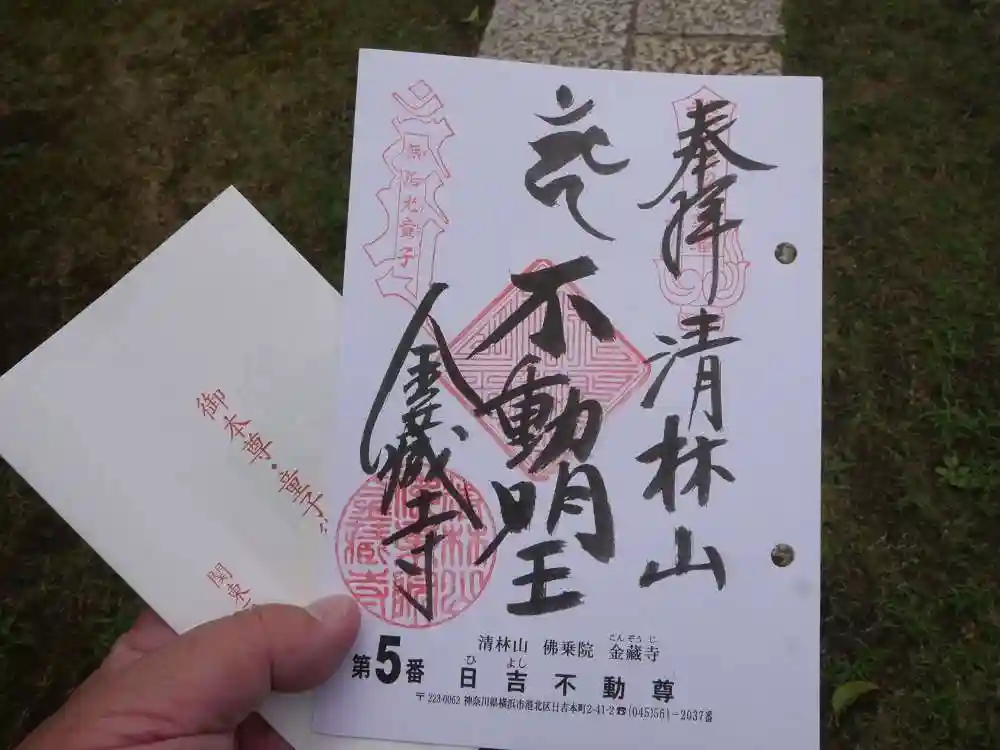 奉拝 清林山
不動明王
金藏寺
無垢光童子
清林山 佛乗院 金藏寺
こんぞうじ
第5番 日吉不動尊
ひよし
〒223-0062 神奈川県横浜市港北区日吉本町2-41-2☎(045)561-2037番
御本尊・童子
関東